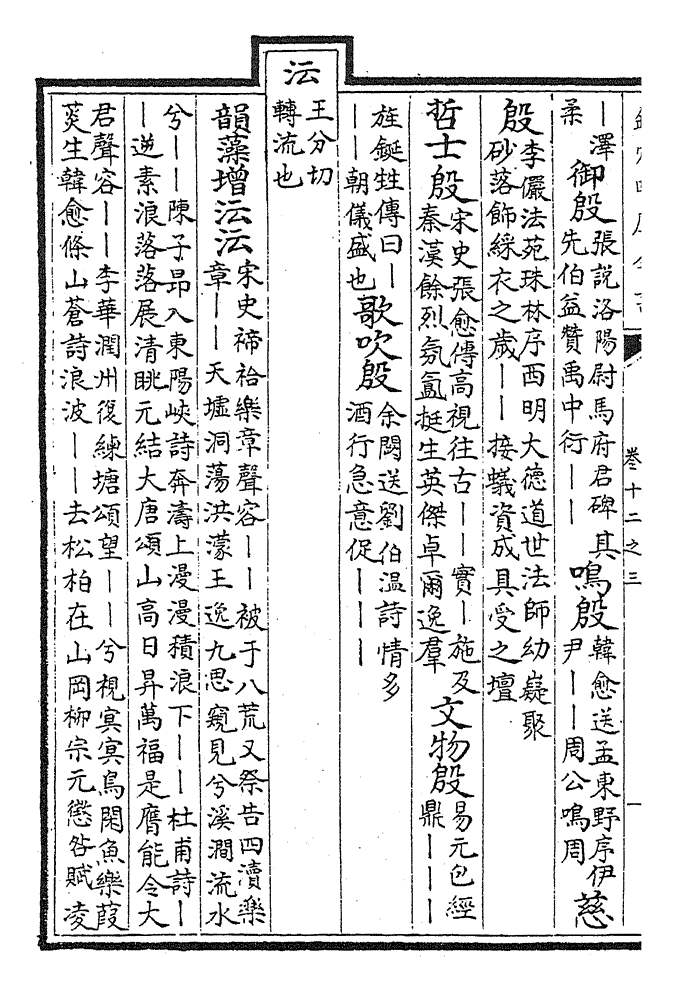 卷十二之三
一
—澤
柔
御殷
張說洛陽尉馬府君碑其
先伯益贊禹中衍——
鳴殷
韓愈送孟東野序伊
尹——周公鳴周
慈
殷
李儼法苑珠林序西明大德道世法師幼嶷聚
砂落飾綵衣之歲——接蟻資成具受之壇
哲士殷
宋史張愈傳高視往古——實—施及
秦漢餘烈氛氳挺生英傑卓爾逸羣
文物殷
易元包經
鼎———
旌鋋甡傳曰—
——朝儀盛也
歌吹殷
余闕送劉伯温詩情多
酒行急意促———
沄
王分切
轉流也
韻藻增沄沄
宋史禘祫樂章聲容——被于八荒又祭告四瀆樂
章——天墟洞蕩洪濛王逸九思窺見兮溪澗流水
兮——陳子昂入東陽峽詩奔濤上漫漫積浪下——杜甫詩—
—逆素浪落落展清眺元結大唐頌山高日昇萬福是膺能令大
君聲容——李華潤州復練塘頌望——兮視冥冥鳥閑魚樂葭
菼生韓愈條山蒼詩浪波——去松柏在山岡柳宗元懲咎賦凌